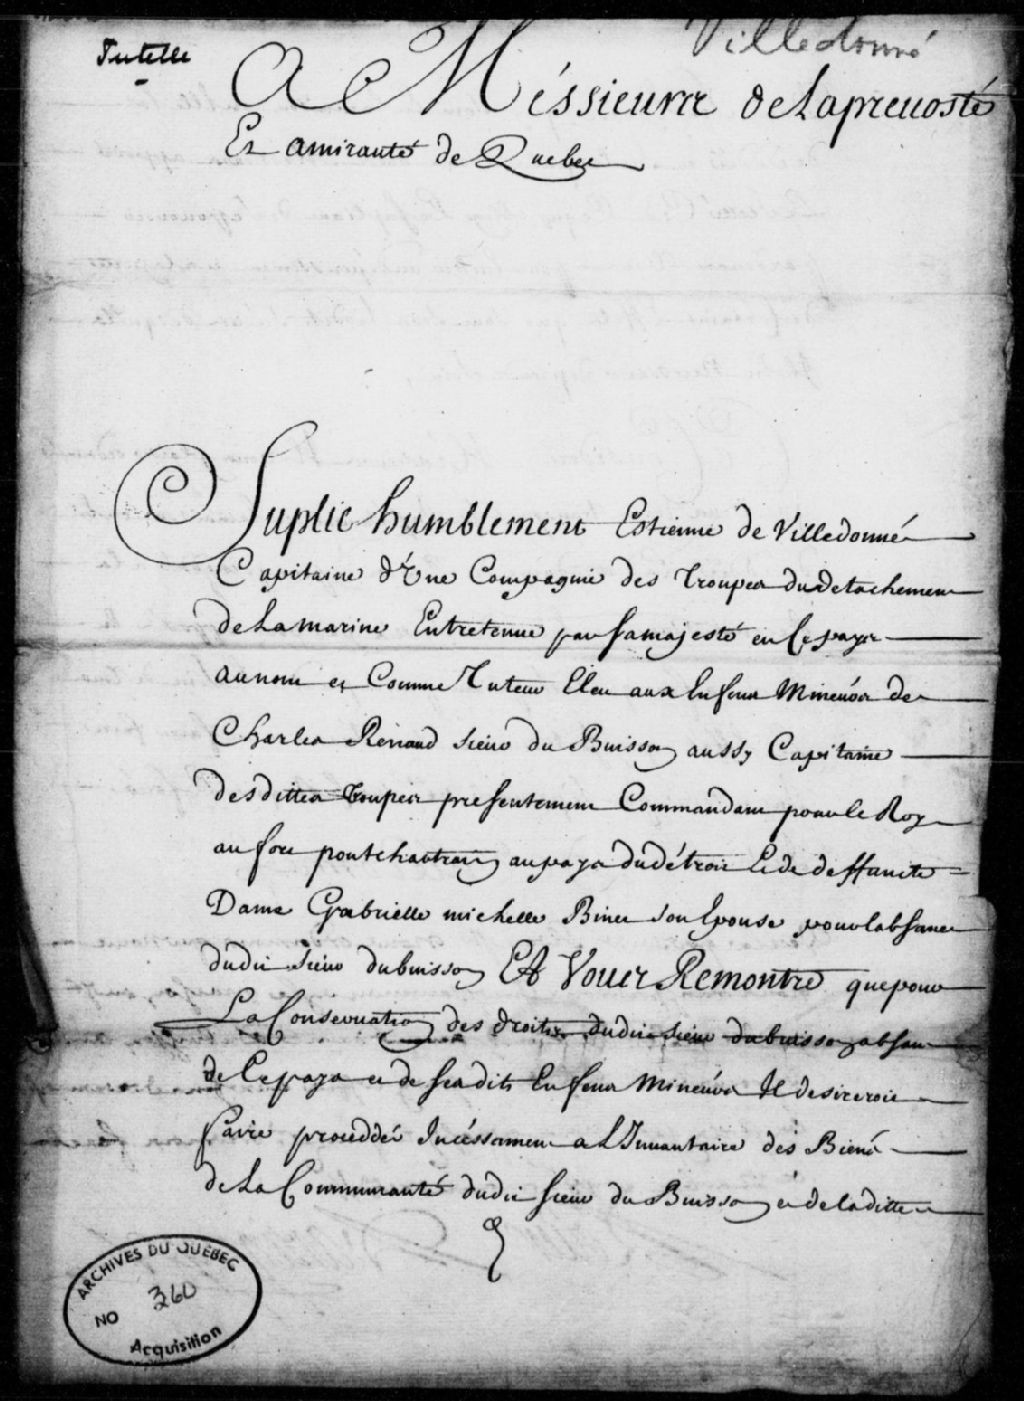 Tutelle
Villedonné
A Méssieurs de Laprevosté
Et amirauté de Quebec
Suplie humblement Estienne de Villedonné
Capitaine d'Une Compagnie des Troupes du detachement
de La marine Entretenue par sa majesté en Ce pays
au nom et Comme Tuteur Eleu aux Enfens Mineurs de
Charles Renaud sieur du Buisson aussy Capitaine
desdittes Troupes presentement Commandant pour le Roy
au fort pontchartrain au pays du détroit Et de deffuncte
Dame Gabrielle michelle Binet son Epouse pour labsence
dudit sieur dubuisson Et Vous Remontre que pour
La Conservation des droits dudit sieur dubuisson absent
de Ce pays et de ses dits Enfens Mineurs Il desireroit
faire proceddér Incéssament a L'Inventaire des Biens
de La Communauté dudit sieur du Buisson et de laditte
ARCHIVES DU QUÉBEC
NO 360
Acquisition